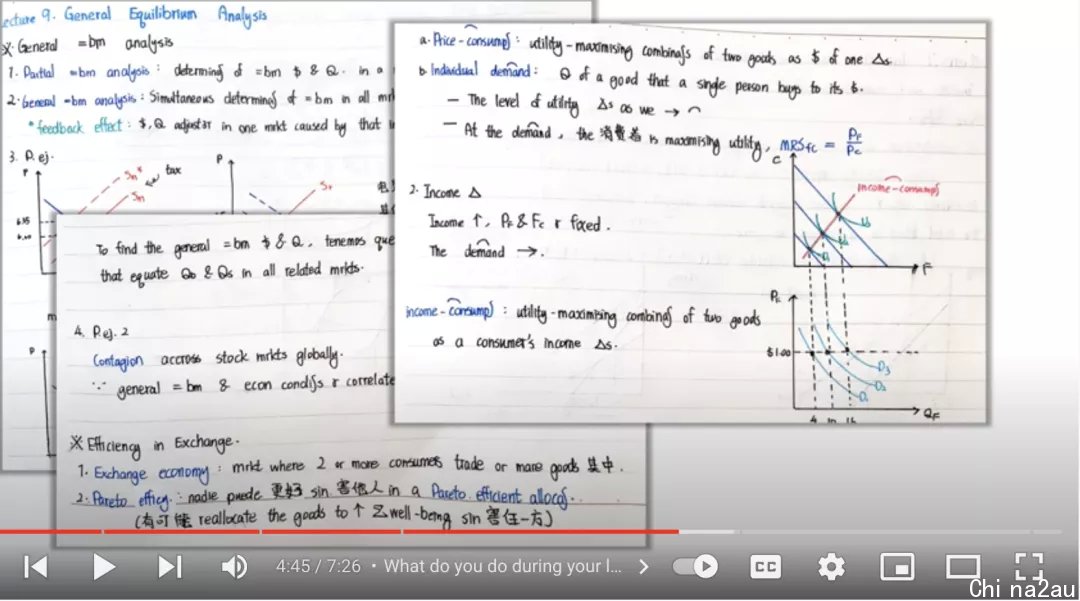 Lecture 9. General Equilibrium Analysis
※. General =bm analysis
1. Partial =bm analysis : determinʃ of =bm $ & Q. in a
2. General =bm analysis : Simultaneous determinʃ of =bm in all mrk
* feedback effect : $, Q adjustar in one mrkt caused by that i
3. P. ej.
P
Sm*
tax
Sm
6.35
6.00
P
Sv
m
P
To find the general =bm $ & Q, tenemos que
that equate QD & QS in all related mrkts.
4. P.ej. 2
Contagion accross stock mrkts globally.
∵ general =bm & econ condiʃs r correlate
※ Efficiency in Exchange.
1. Exchange economy : mrkt where 2 or more consumers trade or more goods 其中.
2. Pareto efficy. : nadie puede 更好 sin 害他人 in a Pareto efficient allocʃ.
(有可能 reallocate the goods to ↑ 之 well-being sin 害任一方)
a. Price-consumpʃ : utility-maximising combinaʃs of two goods as $ of one Δs.
b. Individual demand : Q of a good that a single person buys to its $.
- The level of utility Δs as we → ⌒
- At the demand, the 消費者 is maximising utility, MRSfc = PF/PC
2. Income Δ
Income ↑, PF & FC r fixed.
The demand →.
income-consumpʃ : utility-maximising combinʃ of two goods
as a consumer's income Δs.
C
income-consumpʃ
F
PF
$1.00
D3
D2
D1
4 10 16
QF
4:45 / 7:26 • What do you do during your l...
CC
Chi na2au